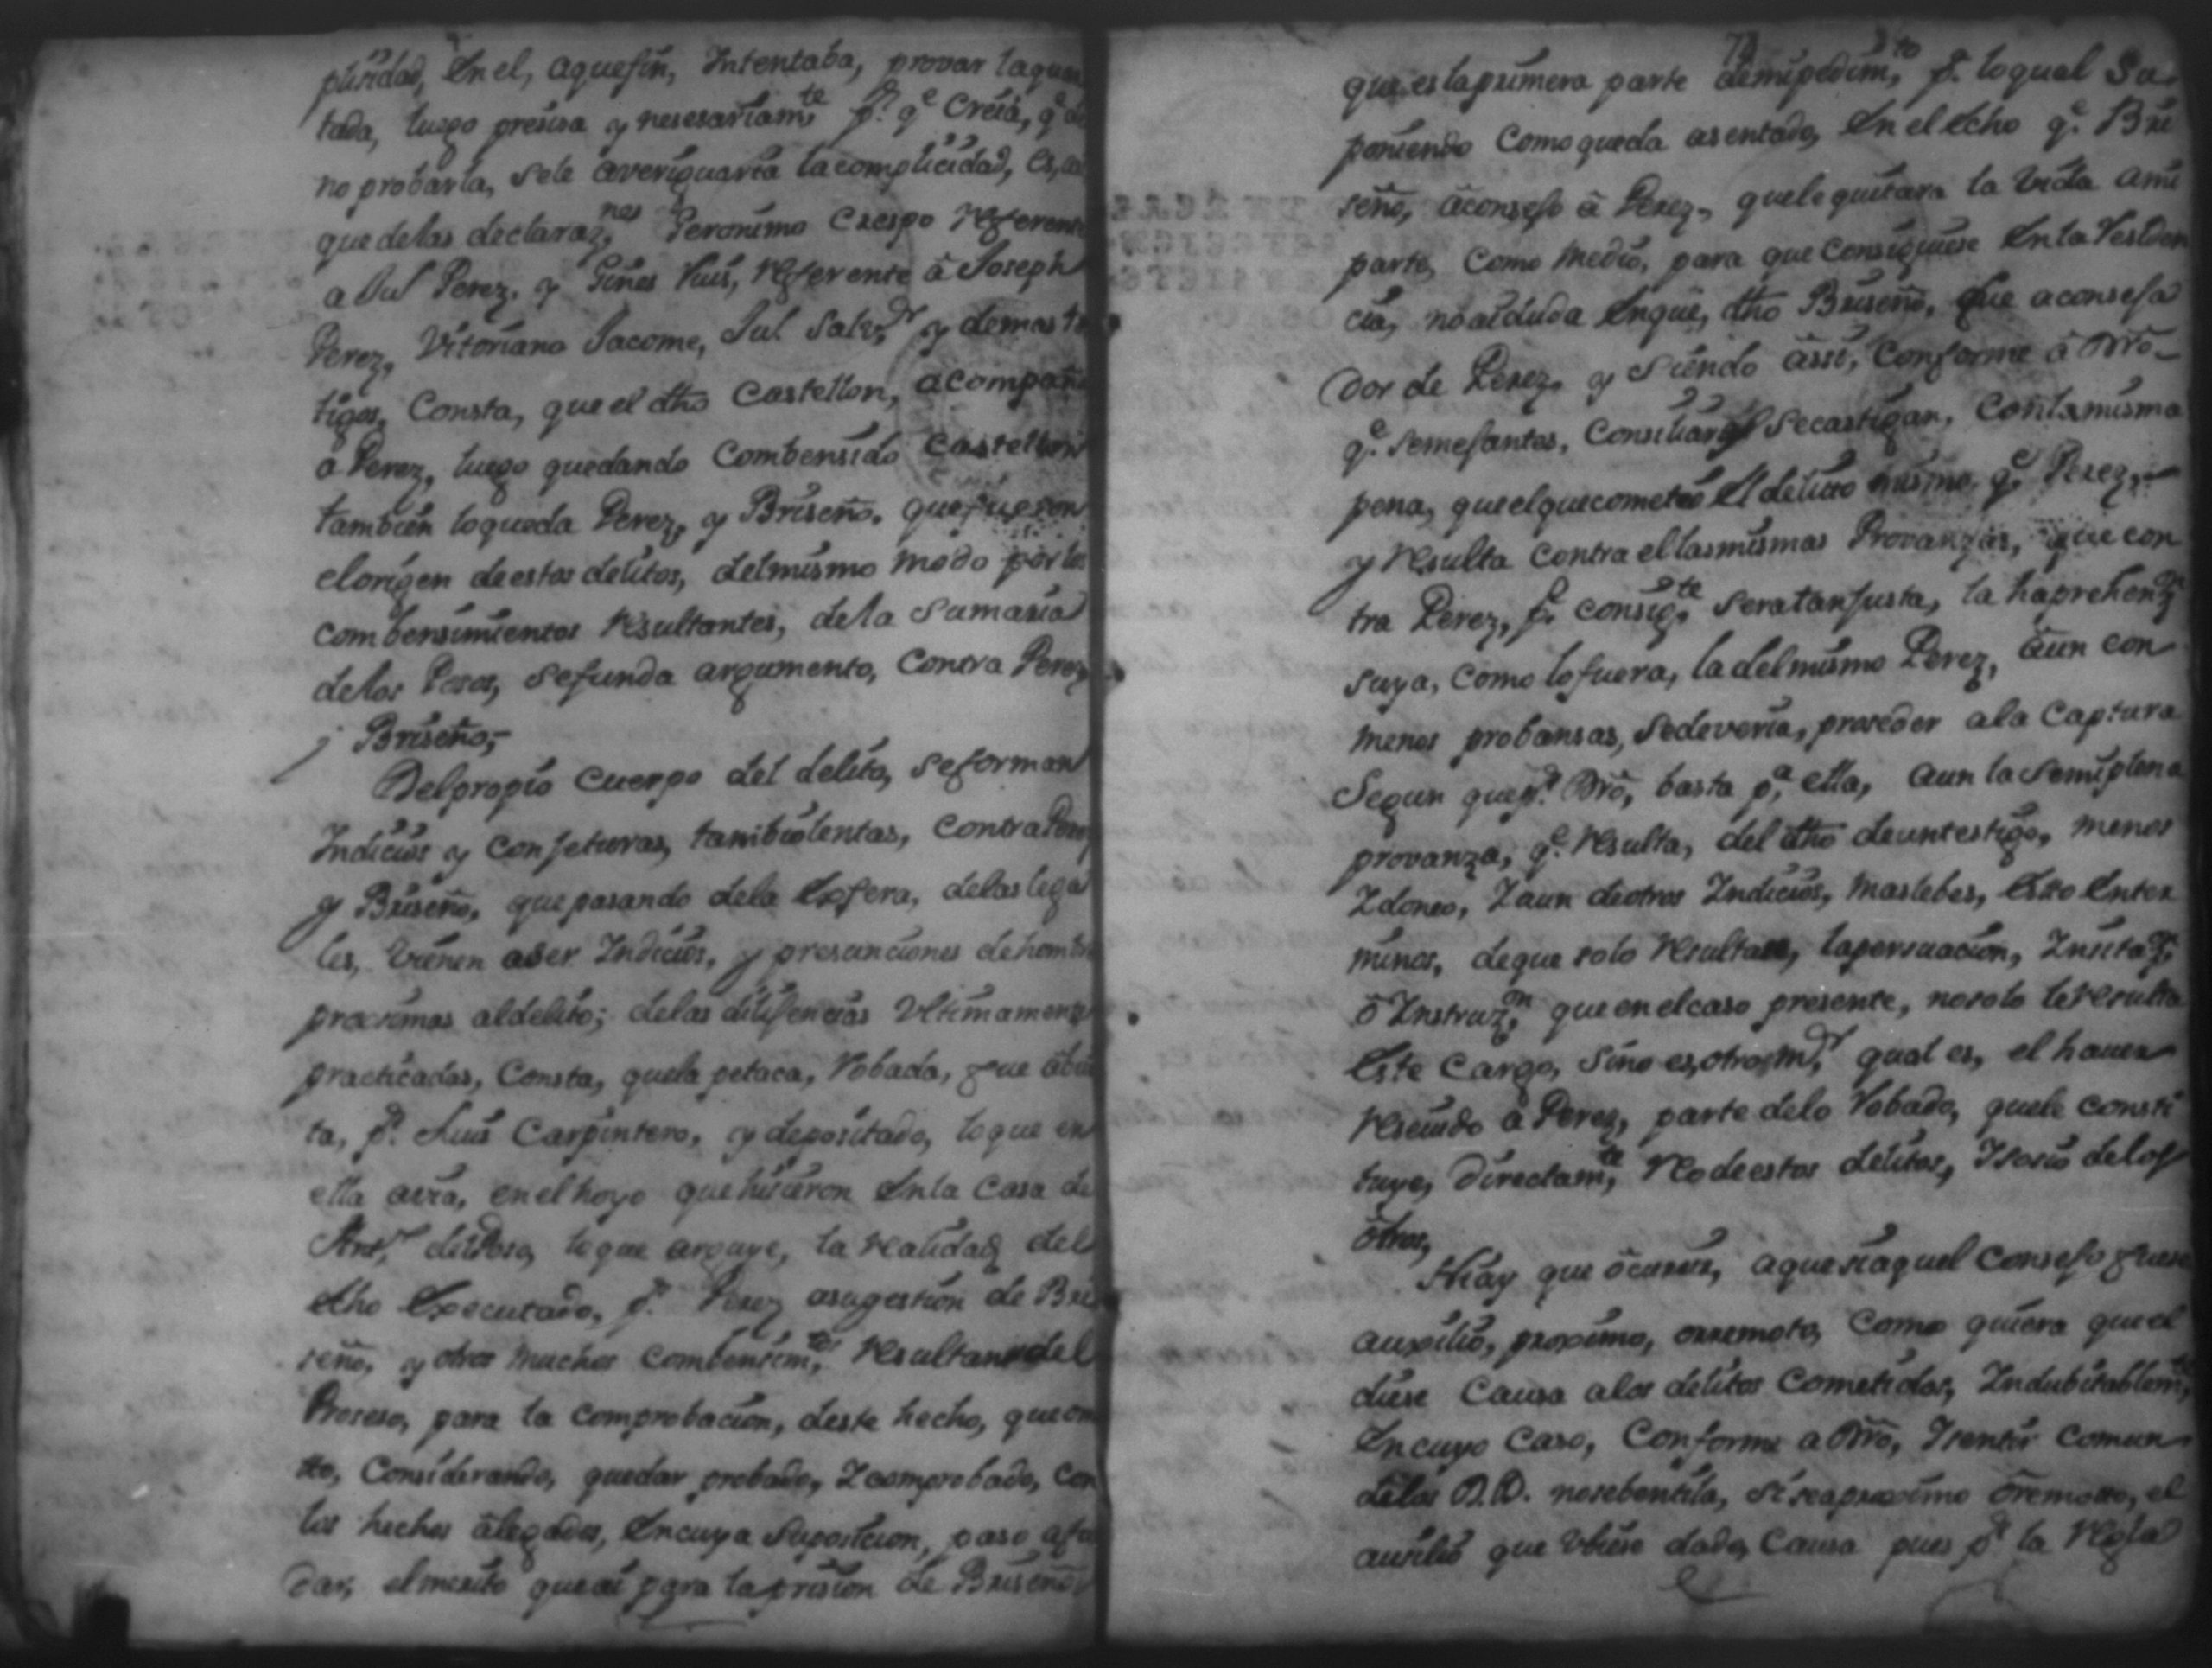 plisidad, en el, aquefin, Intentaba, provar laqua
tada, luego presisa y nesesariamte pr. qe Creia, qe
no probarla, sele averiguaria lacomplicidad, es,
que delas declaraznes Geronimo Crespo Referente
a Jul Perez, y Gines Ruis, Referente â Joseph
Perez, Vitoriano Jacome, Jul. Salzr. y demas te
tigos, Consta, que el dho Castellon, acompañ
â Perez, luego quedando Combensido Castellon
tambien loqueda Perez, y Briseño, quefueron
elorigen deestos delitos, delmismo modo por los
combensimientos Resultantes, dela Sumaria
delos Pesos, sefunda argumento, Contra Perez
y Briseño,-
Delpropio cuerpo del delito, seforman
Indicios y Conjeturas, tanibiolentas, Contra Perez
y Briseño, quepasando dela Esfera, delas lega
les, vienen aser Indicios, y presunciones dehombre
procsimas aldelito; delas dilijencias Ultimamente
practicadas, Consta, quela petaca, Robada, fue abie
ta, pr. Luis Carpintero, y depositado, loque en
ella avia, enelhoyo quehisieron Enla Casa de
Antr. delPoso, loque arguye, la realidad del
dho Executado, pr. Perez asugestion de Bri
seño, y otros muchos Combensimtos Resultan del
Proseso, para la comprobacion, deste hecho, que om
to, Considerando, quedar probado, Icomprobado, con
los hechos âlegados, Encuya Suposicion, paso afun
dar, elmerito queai para laprision de Briseño
que es laprimera parte demipedimto, pr. loqual Su
poniendo Comoqueda asentado, En el echo qe. Bri
seño, âconsejo â Perez, quelequitara la Vida ami
parte, Como medio, para queConsiguiese Enla Residen
cia, noaiduda Enque, dho Briseño, fue aconseja
dor de Perez, y Siendo âssi, Conforme â Dro-
qe. Semejantes, Consiliarios Secastigan, Conlamisma
pena, queelquecometio El delito mismo qe Perez,
y Resulta Contra ellasmismas Provanzas, que con
tra Perez, pr. consigte. Seratanjusta, la haprehenzn
suya, Como lofuera, ladelmismo Perez, âun con
menos probansas, Sedeveria, proseder ala Captura
Segun quepr. Dro, basta pa. ella, aun la Semiplena
provanza, qe. Resulta, del dho deuntestigo, menos
Idoneo, Iaun deotros Indicios, maslebes, Esto Enter
minos, deque solo Resultase, lapersuacion, Insitazn
ô Instruzn, que enelcaso presente, nosolo leResulta
Este Cargo, Sino es,otro,mr. qual es, el haver
Resiuido â Perez, parte delo Robado, quele consti
tuye, Directamte, Reodeestos delitos, Isosio delos
ôtros,
Hay que ôcurir, aquesiaquel Consejo fuese
ausilio, proximo, oremoto, Como quiera queel
diese Causa alos delitos Cometidos, Indubitablemte,
Encuyo Caso, Conforme a Dro, Isentir Comun
delos D.D. nosebentila, Siseaproximo ôremoto, el
ausilio que Ubiese dado, Causa pues pr. la Regla